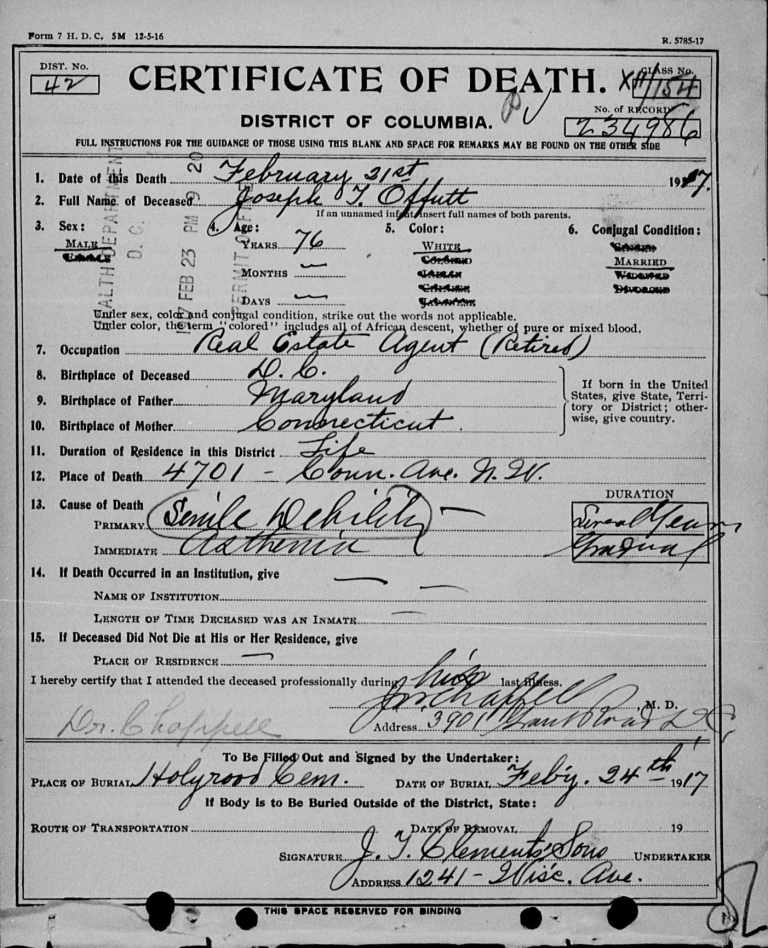 Form 7 H. D. C. 5M 12-5-16
R. 5785-17
DIST. No.
42
CERTIFICATE OF DEATH.
CLASS No.
154
DISTRICT OF COLUMBIA.
No. of RECORD
234986
FULL INSTRUCTIONS FOR THE GUIDANCE OF THOSE USING THIS BLANK AND SPACE FOR REMARKS MAY BE FOUND ON THE OTHER SIDE
1. Date of this Death February 21st 1917.
2. Full Name of Deceased Joseph T. Offutt
If an unnamed infant, insert full names of both parents.
3. Sex: 4. Age: 5. Color: 6. Conjugal Condition:
MALE YEARS 76 WHITE MARRIED
MONTHS —
DAYS —
HEALTH DEPARTMENT
D. C.
FEB 23 PM 9 20
PERMIT OFFICE
Under sex, color and conjugal condition, strike out the words not applicable.
Under color, the term "colored" includes all of African descent, whether of pure or mixed blood.
7. Occupation Real Estate Agent (Retired)
8. Birthplace of Deceased D. C.
9. Birthplace of Father Maryland
10. Birthplace of Mother Connecticut.
If born in the United
States, give State, Terri-
tory or District; other-
wise, give country.
11. Duration of Residence in this District Life
12. Place of Death 4701 - Conn. Ave. N. W.
13. Cause of Death DURATION
PRIMARY Senile Debility — Several Years
IMMEDIATE Asthenia Gradual
14. If Death Occurred in an Institution, give
NAME OF INSTITUTION — —
LENGTH OF TIME DECEASED WAS AN INMATE —
15. If Deceased Did Not Die at His or Her Residence, give
PLACE OF RESIDENCE —
I hereby certify that I attended the deceased professionally during his last illness.
Chappell, M. D.
Dr. Chappell
Address 3901 Grant Road D C
To Be Filled Out and Signed by the Undertaker:
PLACE OF BURIAL Holyrood Cem. DATE OF BURIAL Feb'y. 24th 1917
If Body is to Be Buried Outside of the District, State:
ROUTE OF TRANSPORTATION DATE OF REMOVAL 19
SIGNATURE J. T. Clements' Sons UNDERTAKER
ADDRESS 1241 - Wisc. Ave.
THIS SPACE RESERVED FOR BINDING